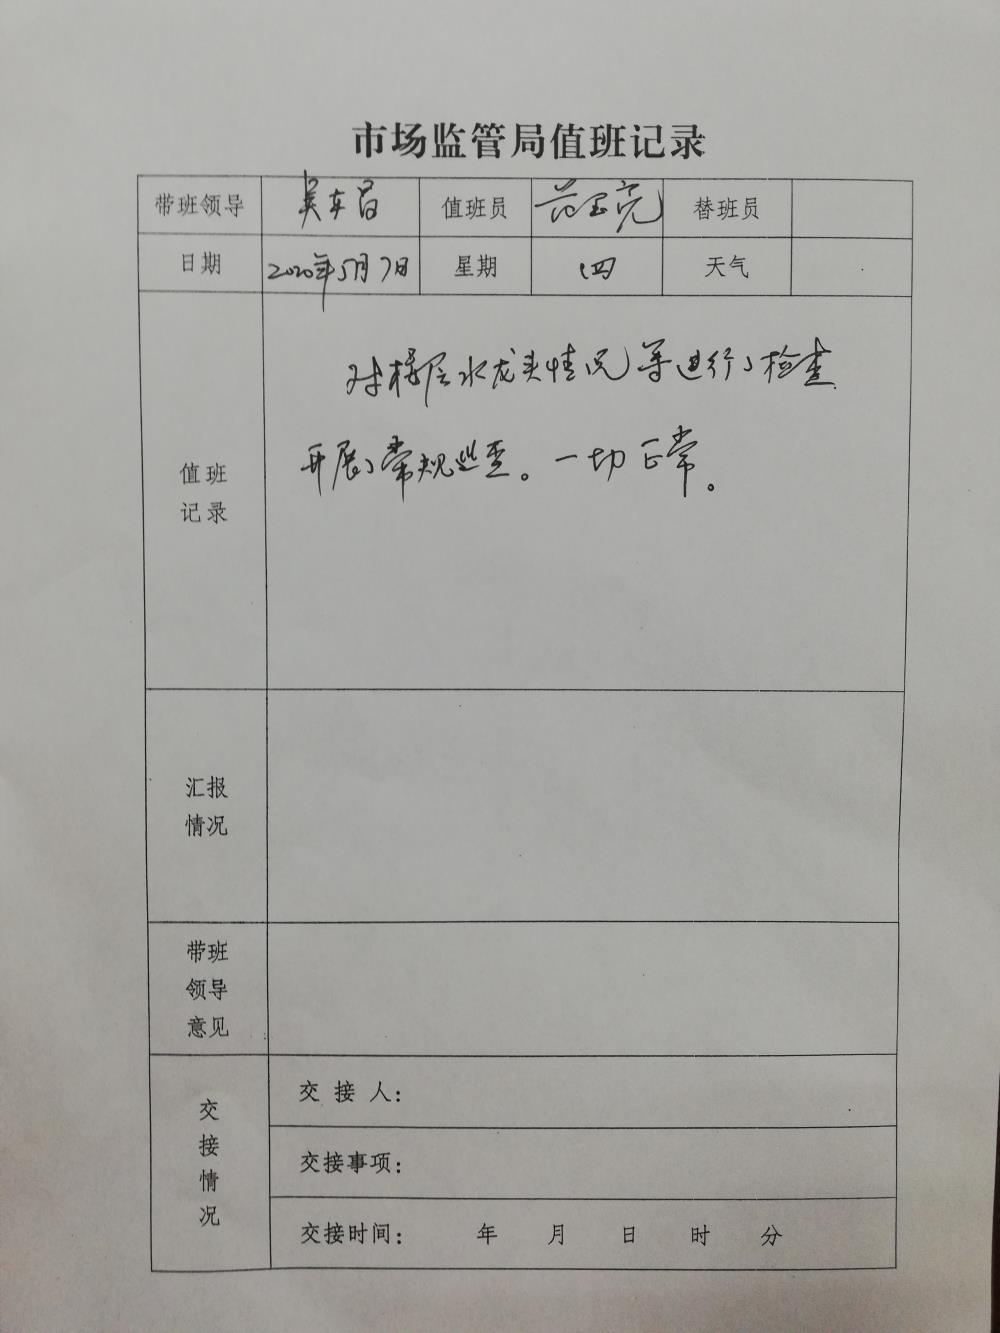 市场监管局值班记录
带班领导 吴东昌 值班员 范宝亮 替班员
日期 2020年5月7日 星期 四 天气
值班
记录
对楼层水龙头情况等进行了检查
开展了常规巡查。一切正常。
汇报
情况
带班
领导
意见
交
接
情
况
交 接 人：
交接事项：
交接时间： 年 月 日 时 分